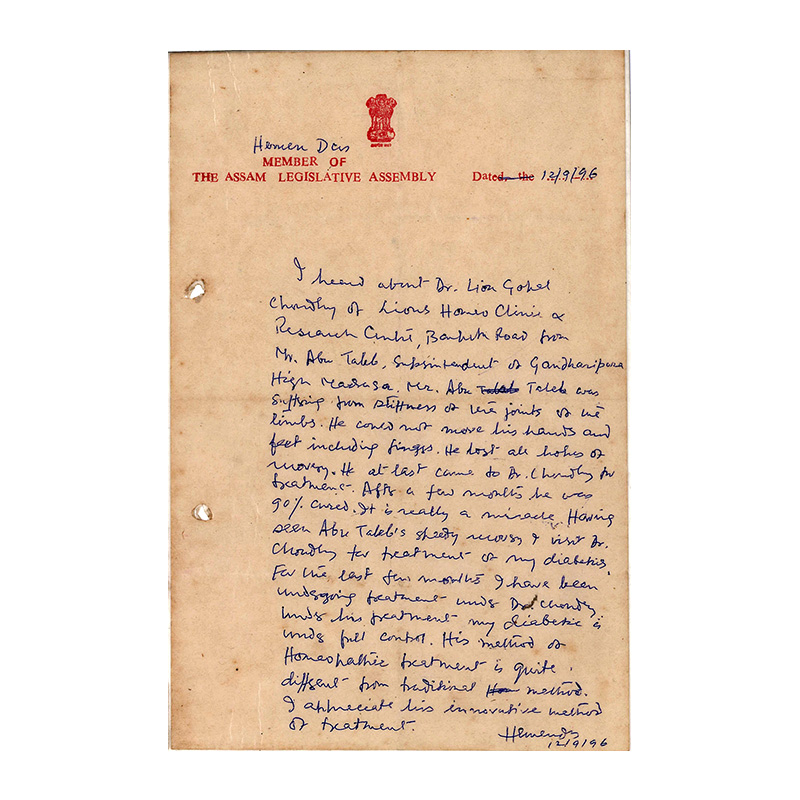 Hemen Das
MEMBER OF
THE ASSAM LEGISLATIVE ASSEMBLY
Dated, the 12/9/96
I heard about Dr. Lion Gopal
Choudhy of Lions Homeo Clinic &
Research Centre, Road from
Mr. Abu Taleb, Suprintendent of Gandharipara
High Madrasa. Mr. Abu Taleb Taleb was
suffring from stiffness of the joints of the
limbs. He could not move his hands and
feet including fingrs. He lost all hopes of
recovery. He at last came to Dr. Choudhy for
treatment. After a few months he was
90% cured. It is really a miracle. Having
seen Abu Taleb's speedy recovery I visit Dr.
Choudhy for treatment of my diabetics.
For the last few months I have been
undergoing treatment under Dr. Choudhy
Under his treatment my diabetic is
under full control. His method of
Homeopathic treatment is quite
different from traditional method.
I appreciate his innovative method
of treatment.
12/9/96